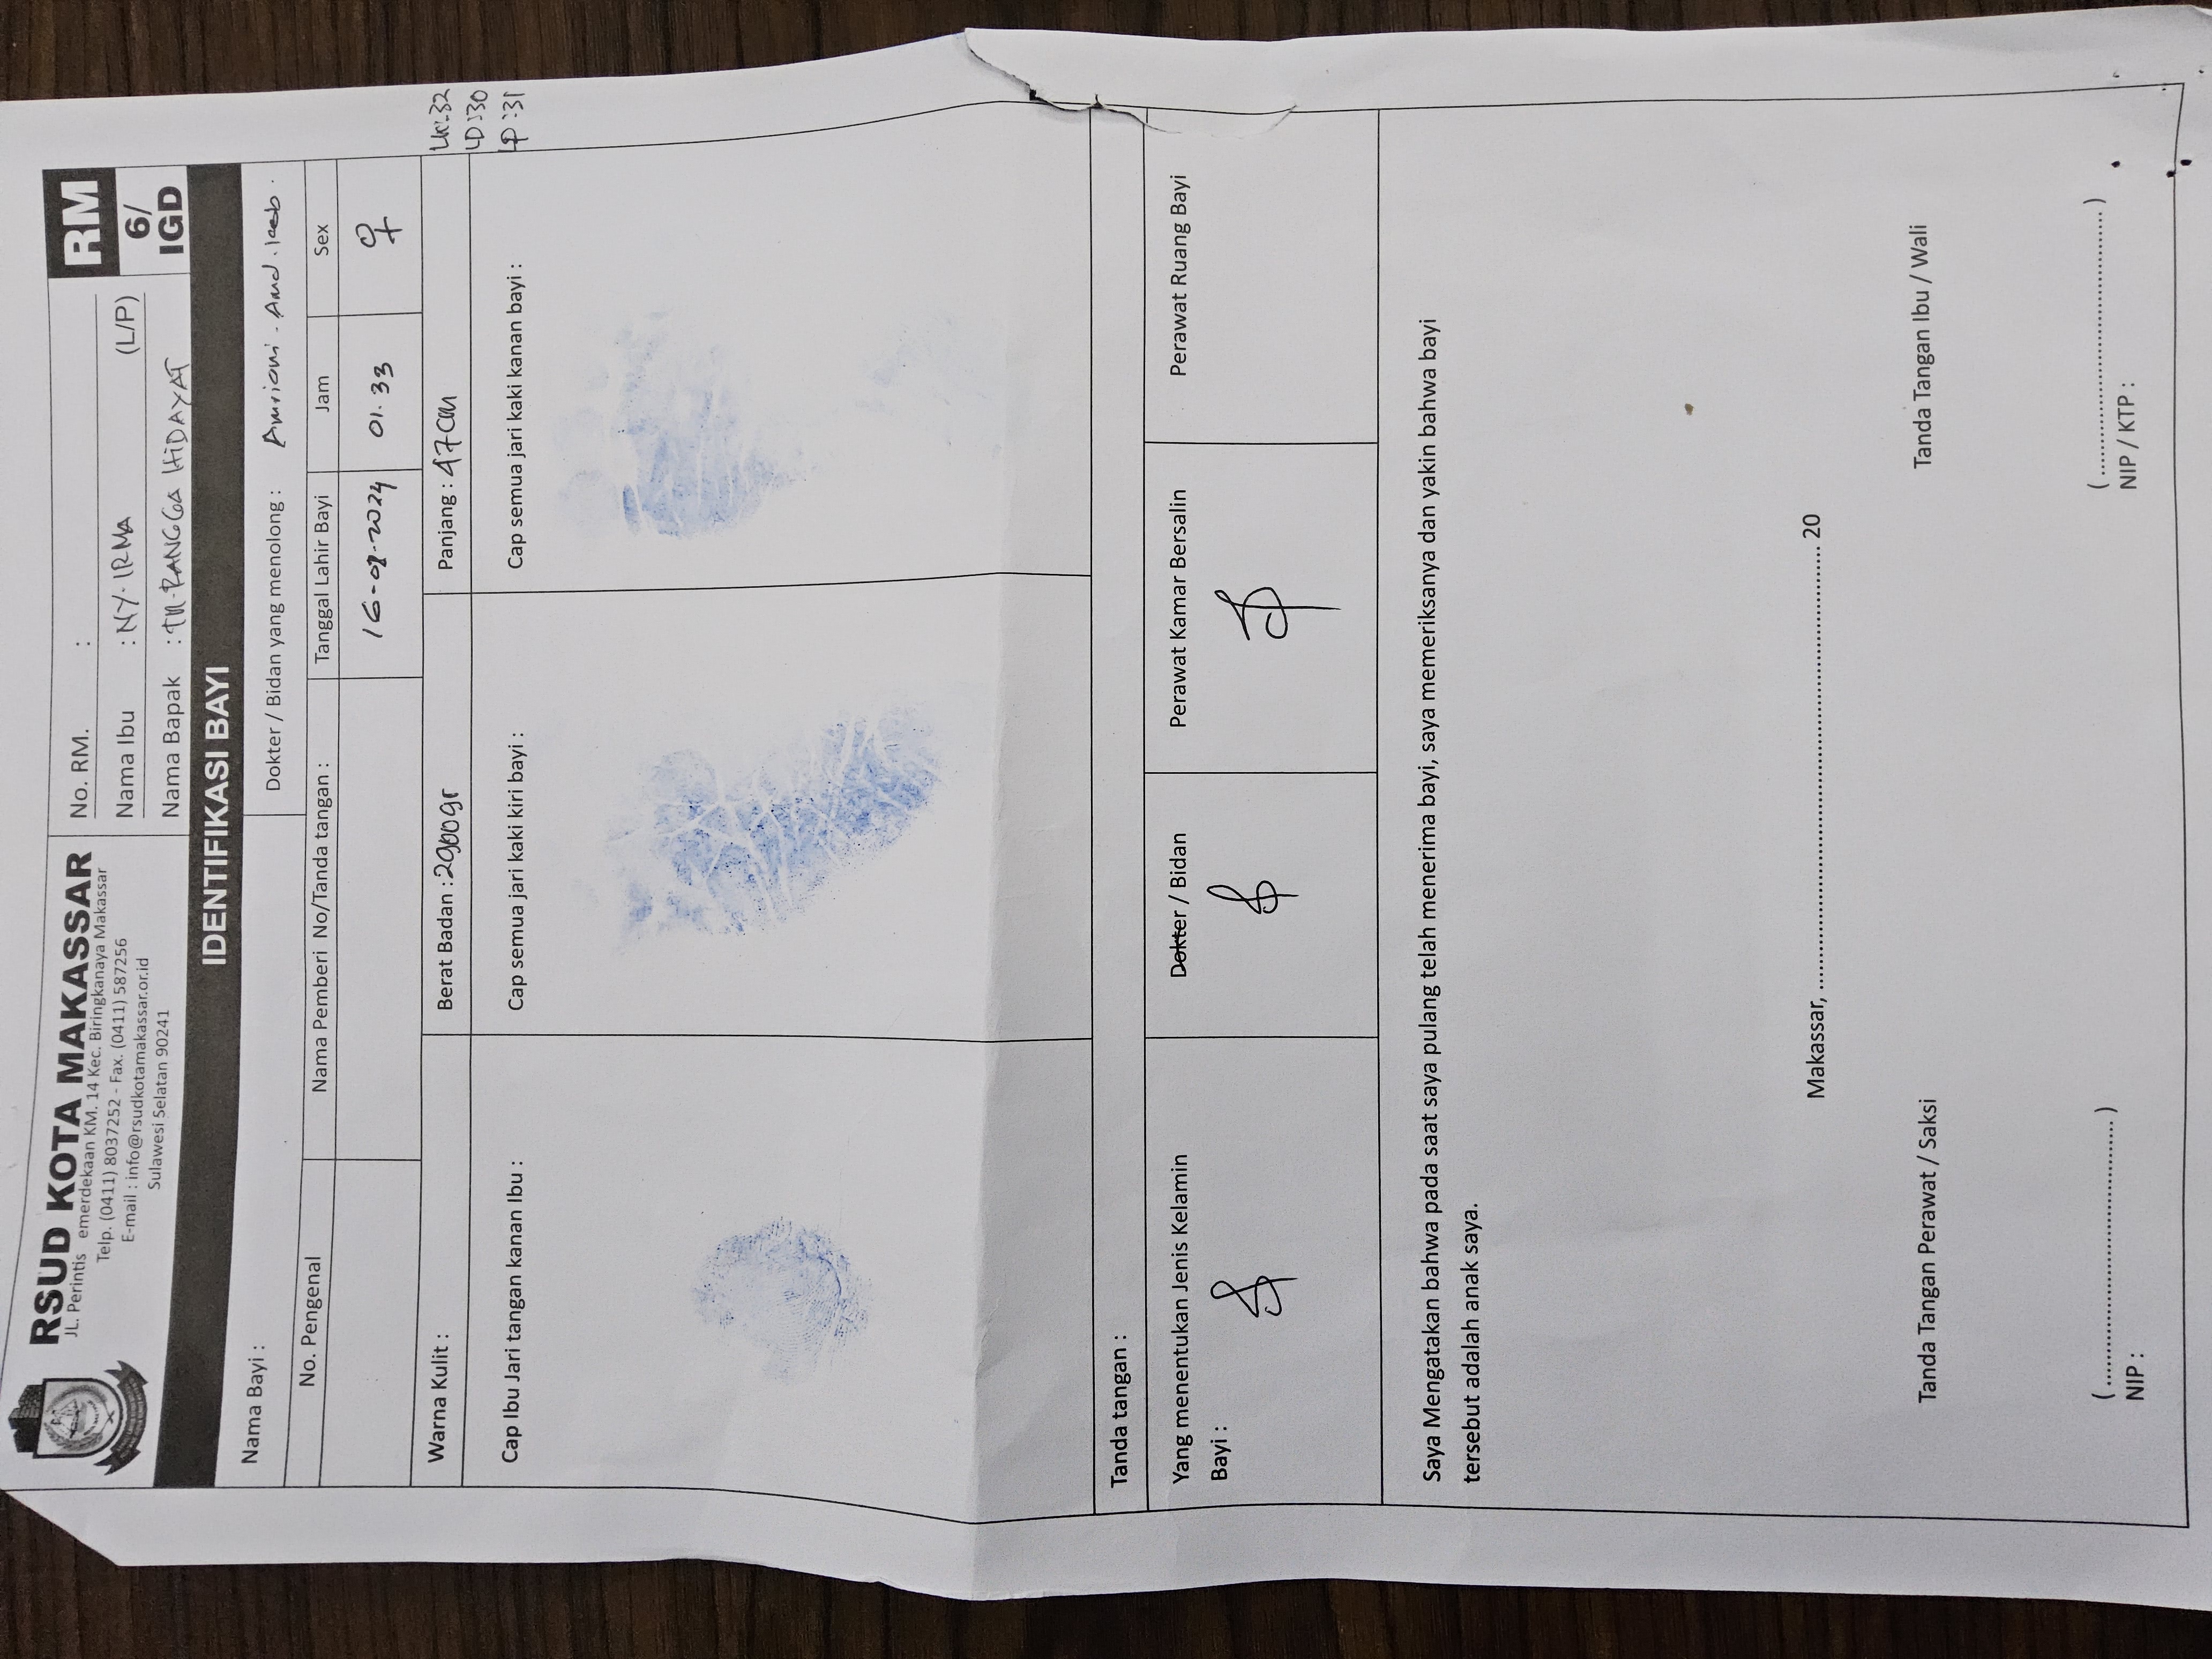 RSUD KOTA MAKASSAR
JL. Perintis emerdekaan KM. 14 Kec. Biringkanaya Makassar
Telp. (0411) 8037252 - Fax. (0411) 587256
E-mail : info@rsudkotamakassar.or.id
Sulawesi Selatan 90241
No. RM. :
Nama Ibu : NY. IRMA (L/P)
Nama Bapak : TN. RANGGA HIDAYAT
RM
6/
IGD
IDENTIFIKASI BAYI
Nama Bayi :
Dokter / Bidan yang menolong :
No. Pengenal
Nama Pemberi No/Tanda tangan :
Tanggal Lahir Bayi
Jam
Sex
01.33
♀
Warna Kulit :
Berat Badan :
Panjang : 47cm
LK:32
LD:30
LP:31
Cap Ibu Jari tangan kanan Ibu :
Cap semua jari kaki kiri bayi :
Cap semua jari kaki kanan bayi :
Tanda tangan :
Yang menentukan Jenis Kelamin
Bayi :
Dokter / Bidan
Perawat Kamar Bersalin
Perawat Ruang Bayi
Saya Mengatakan bahwa pada saat saya pulang telah menerima bayi, saya memeriksanya dan yakin bahwa bayi
tersebut adalah anak saya.
Makassar, .................................................. 20
Tanda Tangan Perawat / Saksi
Tanda Tangan Ibu / Wali
( .................................... )
NIP :
( .................................... )
NIP / KTP :